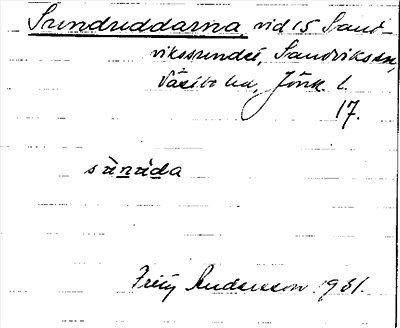 Sundruddarna vid 15 Sand-
vikssundet, Sandviksån,
Västbo hd, Jönk. l.
17.
sùnrùda
Fritz Andersson 1931.